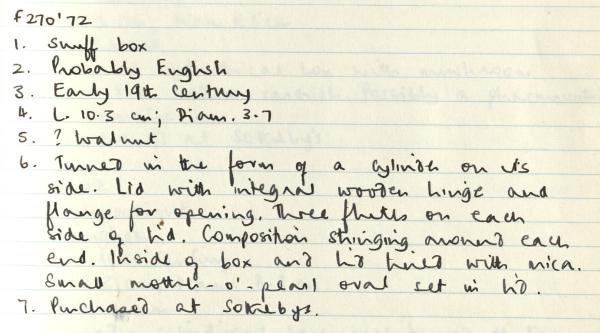 f270'72
1. Snuff box
2. Probably English
3. Early 19th Century
4. L. 10.3 cm; Diam. 3.7
5. ? Walnut
6. Turned in the form of a cylinder on its
side. Lid with integral wooden hinge and
flange for opening. Three flutes on each
side of lid. Composition stringing around each
end. Inside of box and lid lined with mica.
Small mother-o'-pearl oval set in lid.
7. Purchased at Sotheby's.